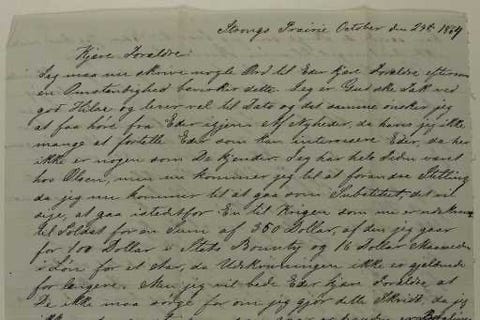 Strongs Prairie October den 24de 1864
Kjere Foreldre!
Jeg maa nu skrive nogle Ord til Eder kjere Foreldre eftersom
en Omstendighed bevirker dette. Jeg er Gud ske Lak ved
god Helse og lever vel til Dato og det samme ønsker jeg
at faa høre fra Eder igjen. Af Nyheder, da haves jeg ikke
mange at fortelle Eder som kan interessere Eder, da her
ikke er nogen som De kjender. Jeg har hele tiden veret
hos Olsen, men nu kommer jeg til at forandre Stilling
da jeg nu kommer til at gaa som Substitut, det vil
sije, at gaa istedetfor En til Krigen som nu er udskreven
til Soldat for en Sum af 350 Dollar, af den jeg gaar
for 100 Dollar i Stats Bounty og 16 Dollar Maaneden
i Løn for et Aar, da Udskrivningen ikke er gjeldende
for lengere. Men jeg vil bede Eder kjere Foreldre, at
De ikke maa sørge for om jeg gjør dette Skridt, da jeg